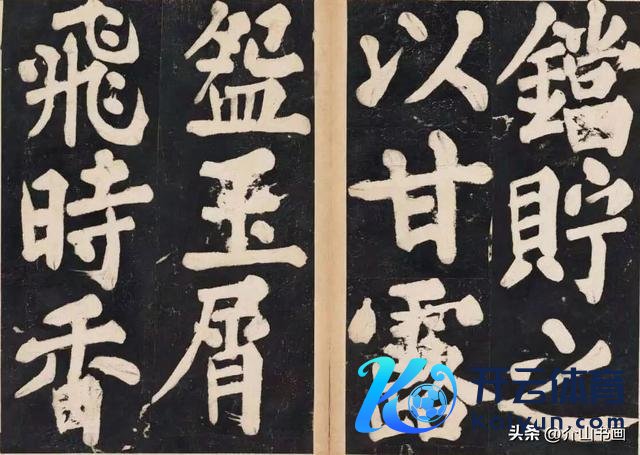 鐺貯之
以甘露
盌玉屑
飛時香
开云体育
Kaiyun.com
头条 @介山书画